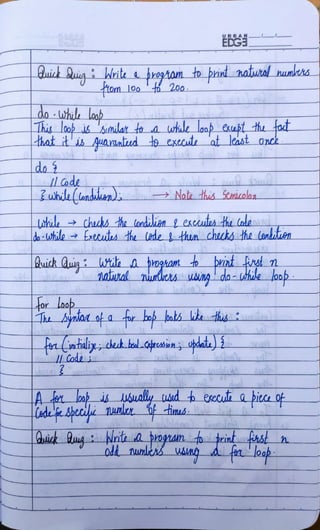 URBAN
EDGE
Quick Quiz : Write a program to print natural numbers
from 100 to 200.
do-while loop
This loop is similar to a while loop except the fact
that it is guaranteed to execute at least once.
do {
// Code
} while (condition); → Note this Semicolon
while → checks the condition & executes the code
do-while → Executes the code & then checks the condition
Quick Quiz : Write a program to print first n
natural numbers using do-while loop.
for Loop
The Syntax of a for loop looks like this :
for (initialize; check bool expression; update) {
// Code ;
}
A for loop is usually used to execute a piece of
Code for specific number of times.
Quick Quiz : Write a program to print first n
odd numbers using a for loop.